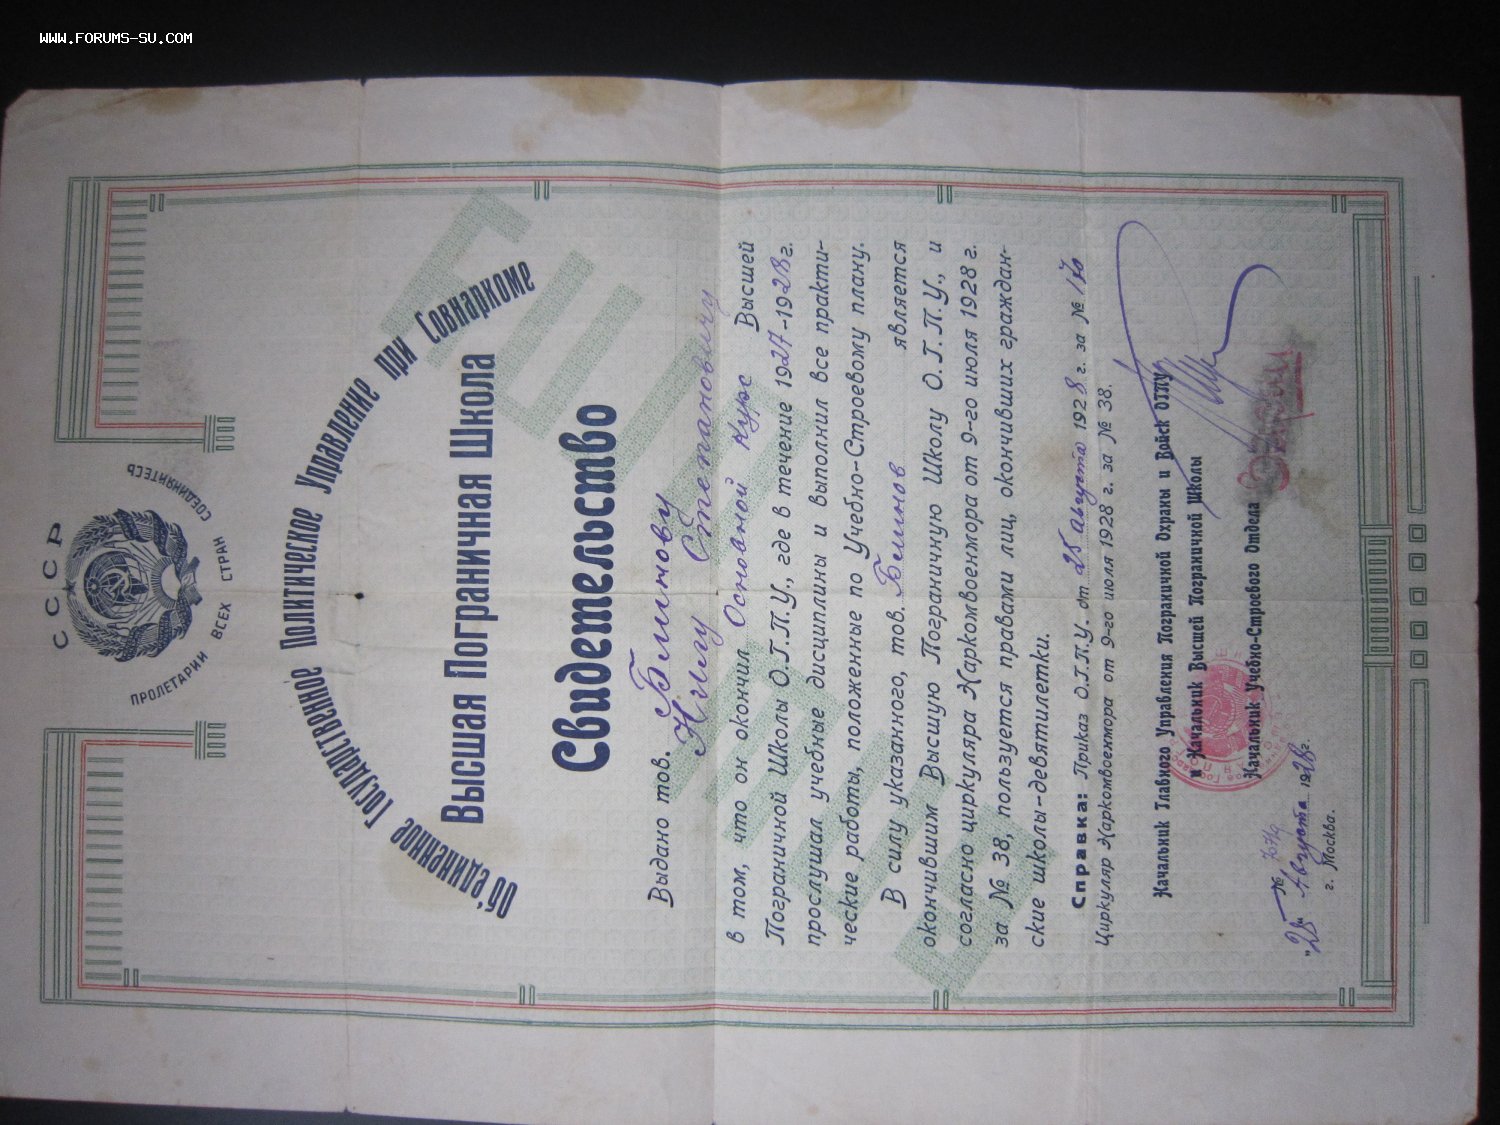 WWW.FORUMS-SU.COM
СССР
ПРОЛЕТАРИИ ВСЕХ СТРАН СОЕДИНЯЙТЕСЬ
Об'единенное Государственное Политическое Управление при Совнаркоме
Высшая Пограничная Школа
Свидетельство
Выдано тов. Блинову
Степановичу
в том, что он окончил Основной курс Высшей
Пограничной Школы О.Г.П.У., где в течение 1927-1928 г.
прослушал учебные дисциплины и выполнил все практи-
ческие работы, положенные по Учебно-Строевому плану.
В силу указанного, тов. Блинов является
окончившим Высшую Пограничную Школу О.Г.П.У., и
согласно циркуляра Наркомвоенмора от 9-го июля 1928 г.
за № 38, пользуется правами лиц, окончивших граждан-
ские школы-девятилетки.
Справка: Приказ О.Г.П.У. от 25 августа 1928 г. за №
Циркуляр Наркомвоенмора от 9-го июля 1928 г. за № 38.
Начальник Главного Управления Пограничной Охраны и Войск ОГПУ
и Начальник Высшей Пограничной Школы
Начальник Учебно-Строевого Отдела
№
„28“ Августа 1928 г.
г. Москва.